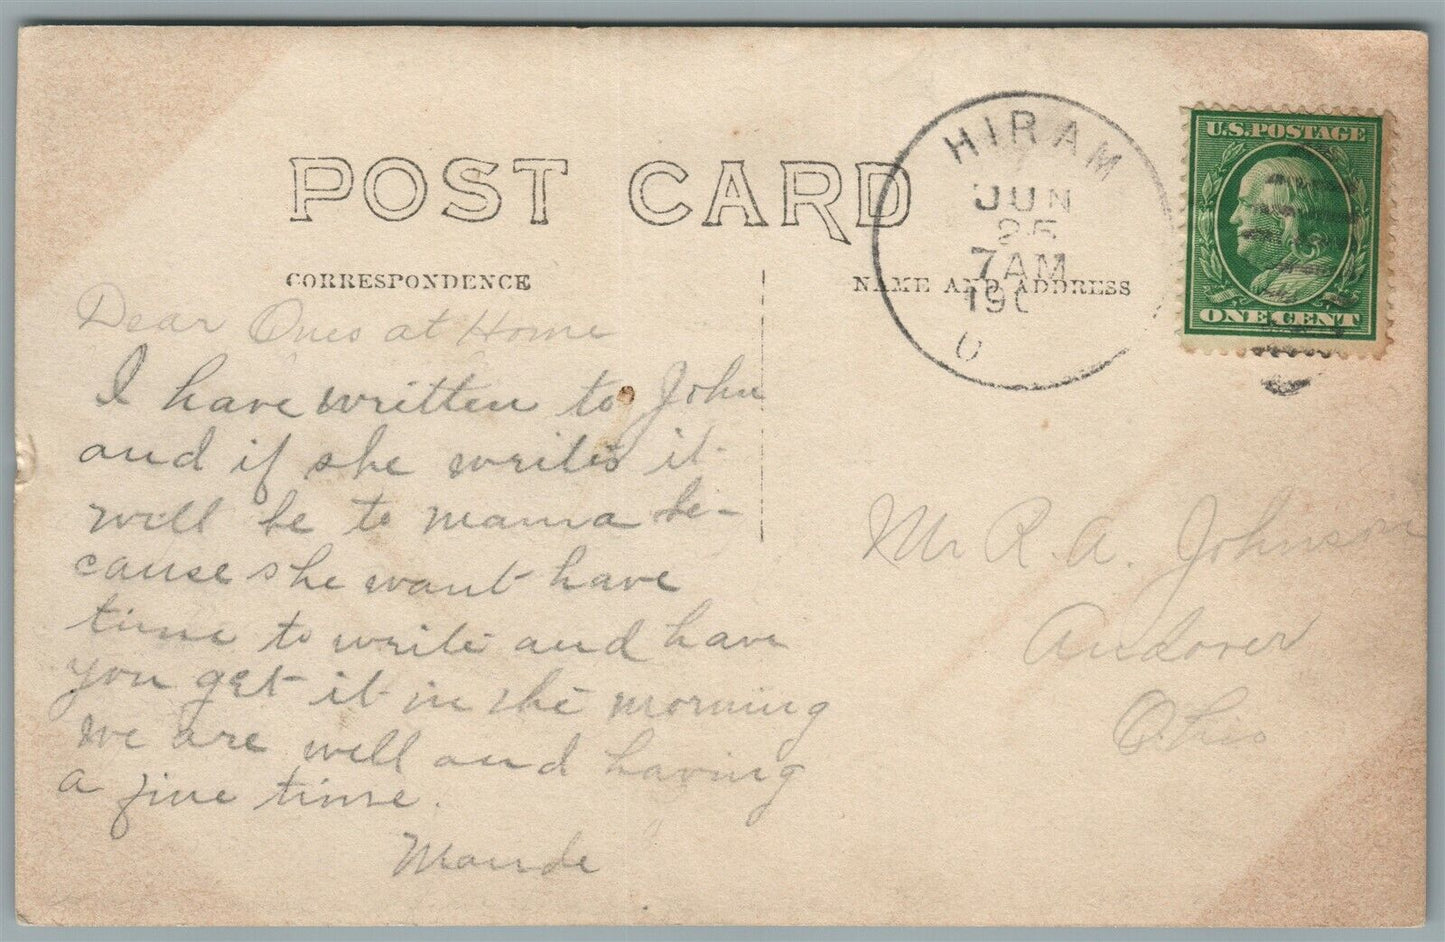 POST CARD
CORRESPONDENCE
NAME AND ADDRESS
HIRAM
JUN
25
7AM
190
O
U.S. POSTAGE
ONE CENT
Dear Ones at Home
I have written to John
and if she writes it
will be to mama be-
cause she want have
time to write and have
you get it in the morning
We are well and having
a fine time.
Maude
Mr R. A. Johnson
Andover
Ohio